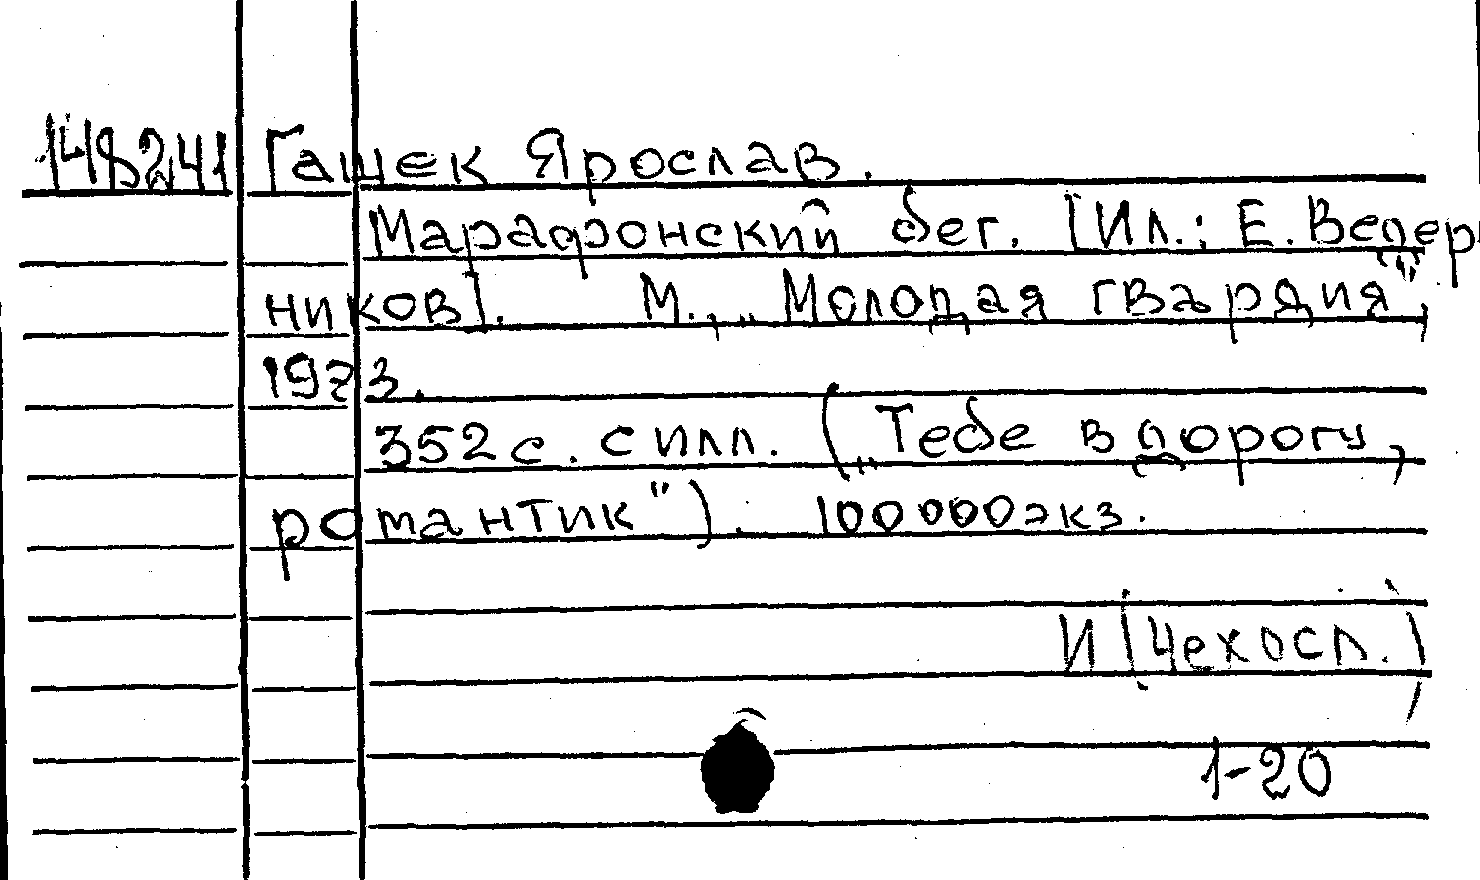 148241 Гашек Ярослав.
Марафонский бег. [Ил.: Е. Ведер
ников]. М., „Молодая гвардия",
1973.
352 с. с илл. („Тебе в дорогу,
романтик"). 100000 экз.
И (Чехосл.)
1-20